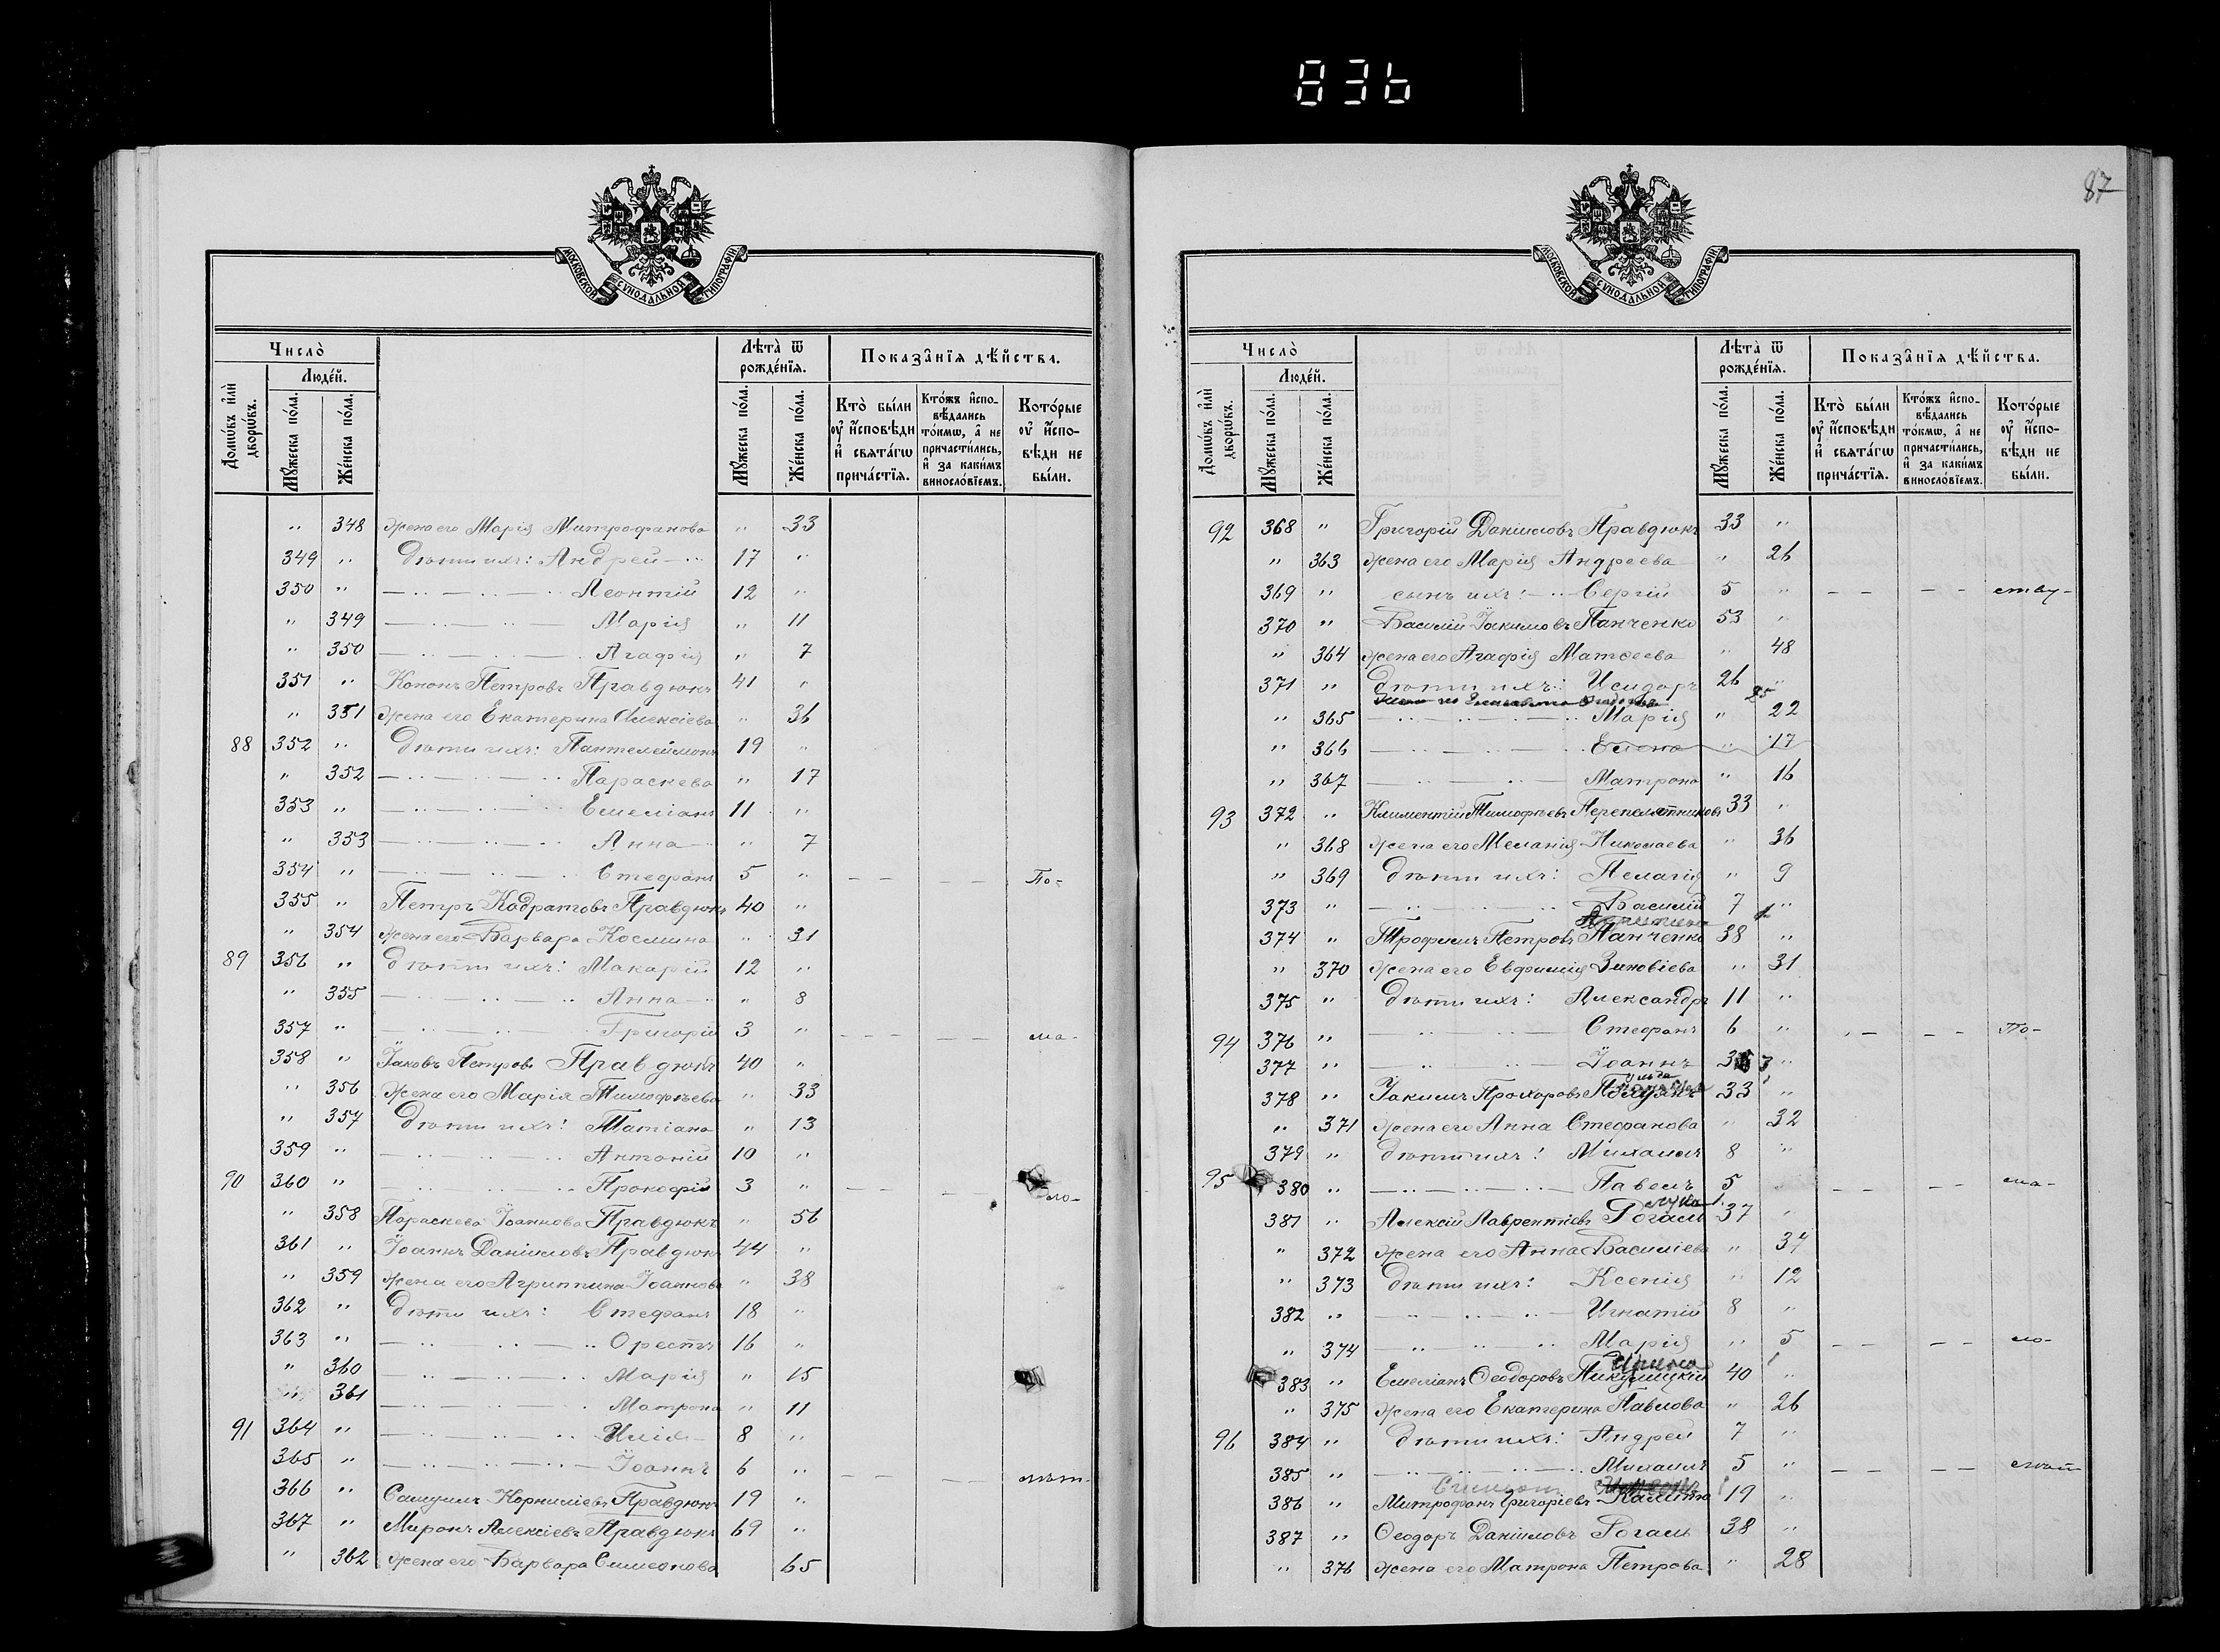 836
87
МОСКОВСКОЙ СѴНОДАЛЬНОЙ ТИПОГРАФІИ.
Число̀
Люде́й.
Домѡ́въ и҆лѝ дворѡ́въ.
Мꙋ́жеска по́ла.
Же́нска по́ла.
Лѣта̀ ѿ рожде́нїѧ.
Мꙋ́жеска по́ла.
Же́нска по́ла.
Показа̂нїѧ дѣ́йства.
Кто̀ бы́ли ᲂу҆ и҆́сповѣди и҆ свѧта́гѡ прича́стїѧ.
Кто́жъ и҆спо-вѣ́дались то́кмѡ, а҆ не причасти́лись, и҆ за каки́мъ винослóвїемъ.
Кото́рые ᲂу҆ и҆́спо-вѣди не бы́ли.
" 348 Жена его Марія Митрофанова " 33
349 " Дѣти ихъ: Андрей 17 "
350 " Леонтій 12 "
" 349 Марія " 11
" 350 Агафія " 7
351 " Кононъ Петровъ Правдюкъ 41 "
" 351 Жена его Екатерина Алексіева " 36
88 352 " Дѣти ихъ: Пантелеймонъ 19 "
" 352 Параскева " 17
353 " Емеліанъ 11 "
" 353 Анна " 7
354 " Стефанъ 5 " — — — — По-
355 " Петръ Кодратовъ Правдюкъ 40 "
" 354 Жена его Варвара Космина " 31
89 356 " Дѣти ихъ: Макарій 12 "
" 355 Анна " 8
357 " Григорій 3 " — — — — ма-
358 " Іаковъ Петровъ Правдюкъ 40 "
" 356 Жена его Марія Тимофѣева " 33
" 357 Дѣти ихъ: Татіана " 13
359 " Антоній 10 "
90 360 " Прокофій 3 " — — — ло-
" 358 Параскева Іоаннова Правдюкъ " 56
361 " Іоаннъ Даніиловъ Правдюкъ 44 "
" 359 Жена его Агриппина Іоаннова " 38
362 " Дѣти ихъ: Стефанъ 18 "
363 " Орестъ 16 "
" 360 Марія " 15
" 361 Матрона " 11
91 364 " Илія 8 "
365 " Іоаннъ 6 " — — — — лѣт-
366 " Самуилъ Корниліевъ Правдюкъ 19 "
367 " Миронъ Алексіевъ Правдюкъ 69 "
" 362 Жена его Варвара Симеонова 65
МОСКОВСКОЙ СѴНОДАЛЬНОЙ ТИПОГРАФІИ.
Число̀
Люде́й.
Домѡ́въ и҆лѝ дворѡ́въ.
Мꙋ́жеска по́ла.
Же́нска по́ла.
Лѣта̀ ѿ рожде́нїѧ.
Мꙋ́жеска по́ла.
Же́нска по́ла.
Показа̂нїѧ дѣ́йства.
Кто̀ бы́ли ᲂу҆ и҆́сповѣди и҆ свѧта́гѡ прича́стїѧ.
Кто́жъ и҆спо-вѣ́дались то́кмѡ, а҆ не причасти́лись, и҆ за каки́мъ винослóвїемъ.
Кото́рые ᲂу҆ и҆́спо-вѣди не бы́ли.
92 368 " Григорій Даніиловъ Правдюкъ 33 "
" 363 Жена его Марія Андреева " 26
369 " сынъ ихъ: Сергій 5 " — — — — ству-
370 " Василій Іакимовъ Панченко 53 "
" 364 Жена его Агафія Матѳеева " 48
371 " Дѣти ихъ: Исидоръ 26 "
25
" 365 Марія " 22
" 366 Елена " 17
" 367 Матрона " 16
93 372 " Климентій Тимофѣевъ Перепелятниковъ 33 "
" 368 Жена его Меланія Николаева " 36
" 369 Дѣти ихъ: Пелагія " 9
373 " Василій 7 "
374 " Трофимъ Петровъ Панченко 38 "
" 370 Жена его Евфимія Зиновіева " 31
375 " Дѣти ихъ: Александръ 11 "
94 376 " Стефанъ 6 " — — — По-
377 " Іоаннъ 3 "
378 " Іакимъ Прохоровъ 33 "
" 371 Жена его Анна Стефанова " 32
379 " Дѣти ихъ: Михаилъ 8 "
95 380 " Павелъ 5 — — — — ма-
Лука 1
381 " Алексій Лаврентіевъ Рогаль 37 "
" 372 Жена его Анна Василіева " 34
" 373 Дѣти ихъ: Ксенія " 12
382 " Игнатій 8 "
" 374 Марія " 5 — — — — ло-
383 " Емеліанъ Ѳеодоровъ Пикулицкій 40 "
" 375 Жена его Екатерина Павлова " 26
96 384 " Дѣти ихъ: Андрей 7 "
385 " Михаилъ 5 " — — — —
386 " Митрофанъ Григоріевъ Калита 19 "
387 " Ѳеодоръ Даніиловъ Рогаль 38 "
" 376 Жена его Матрона Петрова " 28